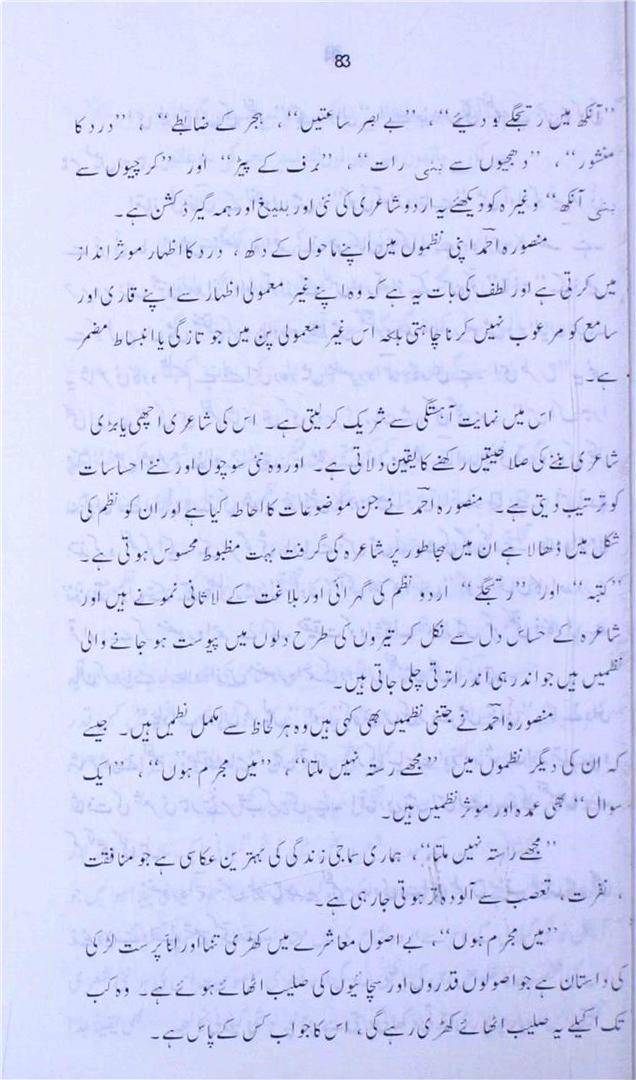 83
”آنکھ میں رتجگے بو دیئے“، ”بے بصر ساعتیں“، ہجر کے ضابطے“، ”درد کا
منشور“، ”دھجیوں سے بنی رات“، ”برف کے پیڑ“ اور ”کرچیوں سے
بنی آنکھ“ وغیرہ کو دیکھئے یہ اردو شاعری کی نئی اور بلیغ اور ہمہ گیر ڈکشن ہے۔
منصورہ احمد اپنی نظموں میں اپنے ماحول کے دکھ، درد کا اظہار موثر انداز
میں کرتی ہے اور لطف کی بات یہ ہے کہ وہ اپنے غیر معمولی اظہار سے اپنے قاری اور
سامع کو مرعوب نہیں کرنا چاہتی بلکہ اس غیر معمولی پن میں جو تازگی یا انبساط مضمر
ہے۔
اس میں نہایت آہستگی سے شریک کر لیتی ہے۔ اس کی شاعری اچھی یا بڑی
شاعری بننے کی صلاحیتیں رکھنے کا یقین دلاتی ہے۔ اور وہ نئی سوچوں اور نئے احساسات
کو ترتیب دیتی ہے۔ منصورہ احمد نے جن موضوعات کا احاطہ کیا ہے اور ان کو نظم کی
شکل میں ڈھالا ہے ان میں بجا طور پر شاعرہ کی گرفت بہت مظبوط محسوس ہوتی ہے۔
”کتبہ“ اور ”رتجگے“ اردو نظم کی گہرائی اور بلاغت کے لاثانی نمونے ہیں اور
شاعرہ کے حساس دل سے نکل کر تیروں کی طرح دلوں میں پیوست ہو جانے والی
نظمیں ہیں جو اندر ہی اندر اترتی چلی جاتی ہیں۔
منصورہ احمد نے جتنی نظمیں بھی کہی ہیں وہ ہر لحاظ سے مکمل نظمیں ہیں۔ جیسے
کہ ان کی دیگر نظموں میں ”مجھے رستہ نہیں ملتا“، ”میں مجرم ہوں“، ”ایک
سوال“ بھی عمدہ اور موثر نظمیں ہیں۔
”مجھے راستہ نہیں ملتا“، ہماری سماجی زندگی کی بہترین عکاسی ہے جو منافقت
، نفرت، تعصب سے آلودہ تر ہوتی جا رہی ہے۔
”میں مجرم ہوں“، بے اصول معاشرے میں کھڑی تنہا اور انا پرست لڑکی
کی داستان ہے جو اصولوں قدروں اور سچائیوں کی صلیب اٹھائے ہوئے ہے۔ وہ کب
تک اکیلے یہ صلیب اٹھائے کھڑی رہے گی، اس کا جواب کس کے پاس ہے۔